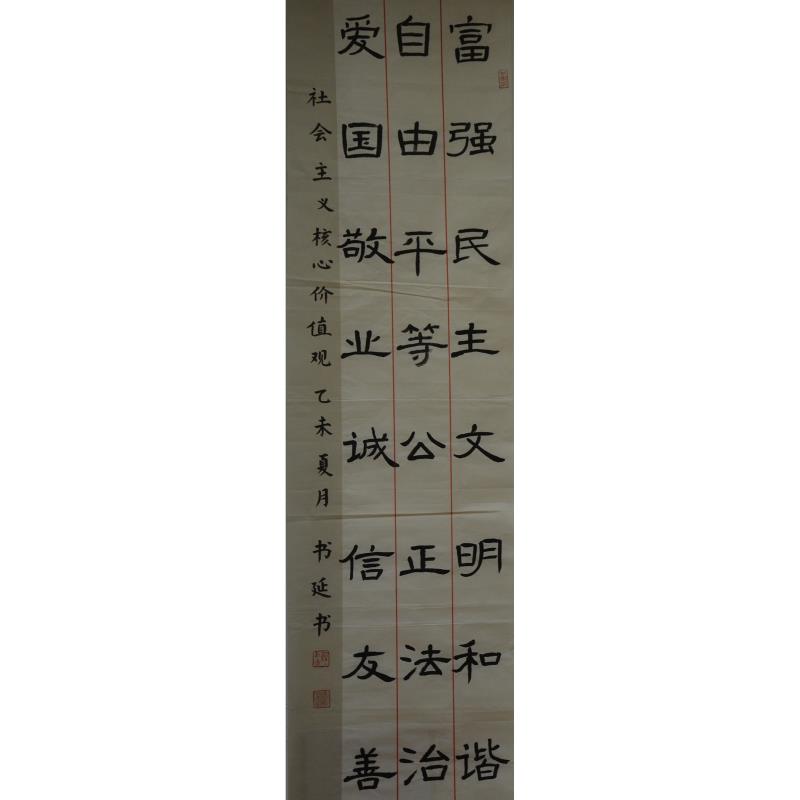 富强民主文明和谐
自由平等公正法治
爱国敬业诚信友善
社会主义核心价值观 乙未夏月 书延书